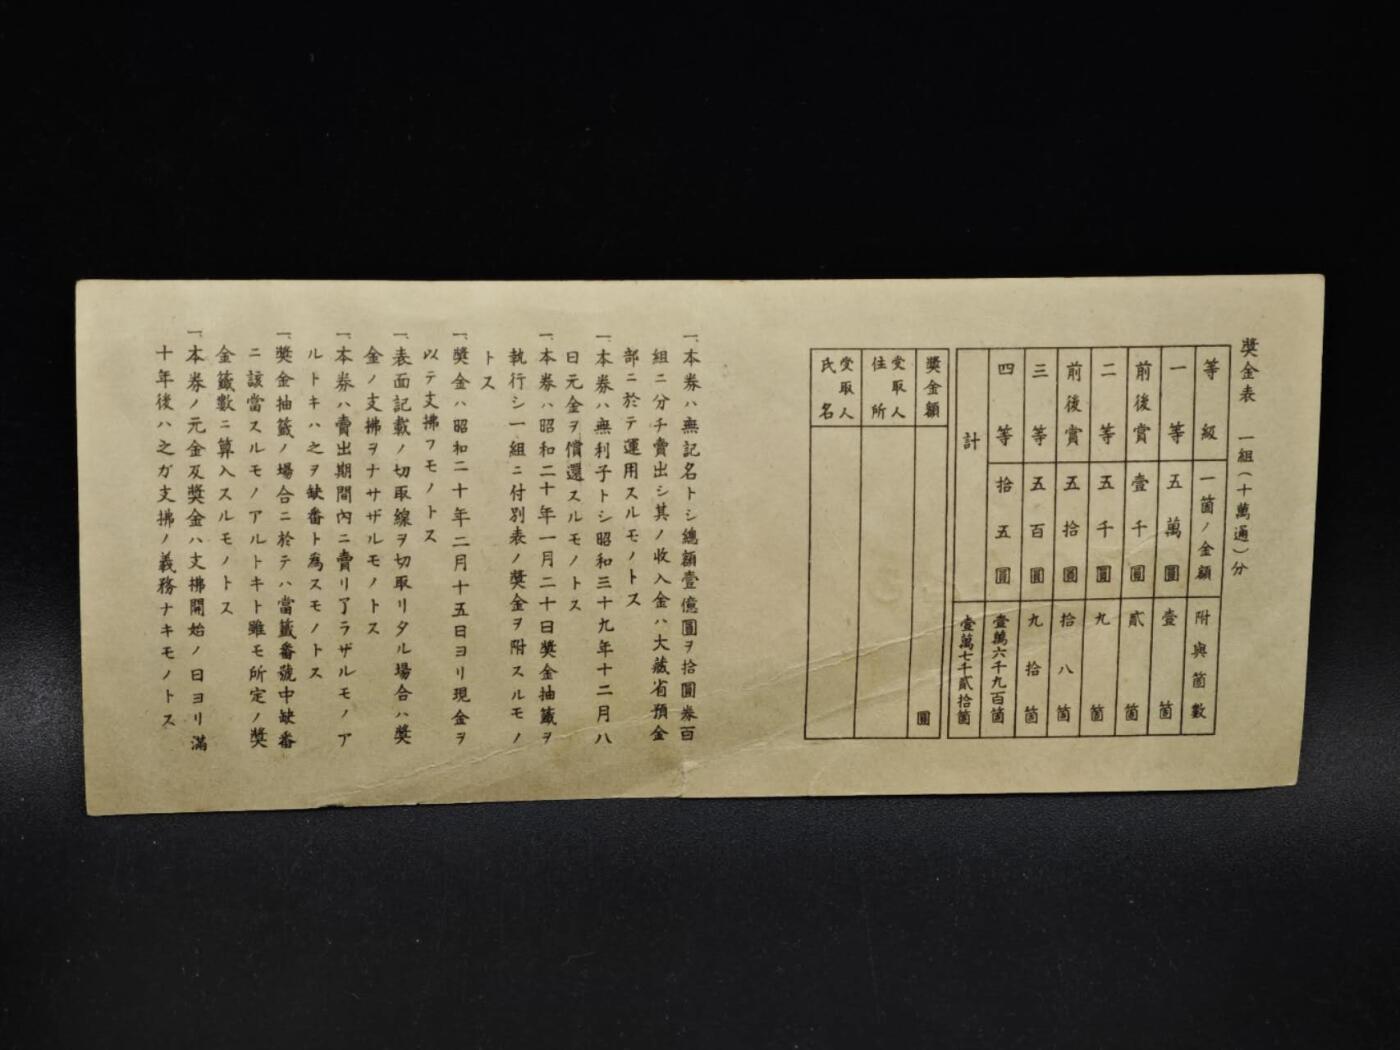 奬金表 一組(十萬通)分
等級 一箇ノ金額 附與箇數
一等 五萬圓 壹箇
前後賞 壹千圓 貳箇
二等 五千圓 九箇
前後賞 五拾圓 拾八箇
三等 五百圓 九拾箇
四等 拾五圓 壹萬六千九百箇
計 壹萬七千貳拾箇
奬金額 圓
受取人住所
受取人氏名
一、本券ハ無記名トシ總額壹億圓ヲ拾圓券百
組ニ分チ賣出シ其ノ收入金ハ大藏省預金
部ニ於テ運用スルモノトス
一、本券ハ無利子トシ昭和三十九年十二月八
日元金ヲ償還スルモノトス
一、本券ハ昭和二十年一月二十日奬金抽籤ヲ
執行シ一組ニ付別表ノ奬金ヲ附スルモノ
トス
一、奬金ハ昭和二十年二月十五日ヨリ現金ヲ
以テ支拂フモノトス
一、表面記載ノ切取線ヲ切取リタル場合ハ奬
金ノ支拂ヲナサザルモノトス
一、本券ハ賣出期間內ニ賣リ了ラザルモノア
ルトキハ之ヲ缺番ト爲スモノトス
一、奬金抽籤ノ場合ニ於テハ當籤番號中缺番
ニ該當スルモノアルトキト雖モ所定ノ奬
金籤數ニ算入スルモノトス
一、本券ノ元金及奬金ハ支拂開始ノ日ヨリ滿
十年後ハ之ガ支拂ノ義務ナキモノトス